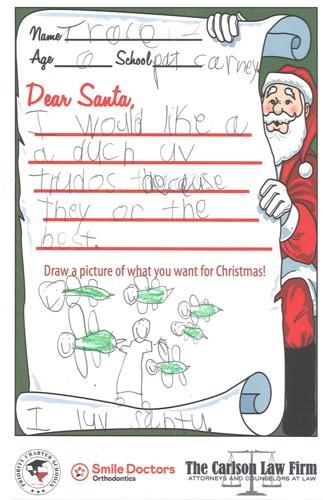 Name Trace
Age 6 School pat carney
Dear Santa,
I would like a
a duch uv
trudos because
they or the
best.
Draw a picture of what you want for Christmas!
I luv santu.
PRIORITY CHARTER SCHOOLS
Smile Doctors
Orthodontics
The Carlson Law Firm
ATTORNEYS AND COUNSELORS AT LAW